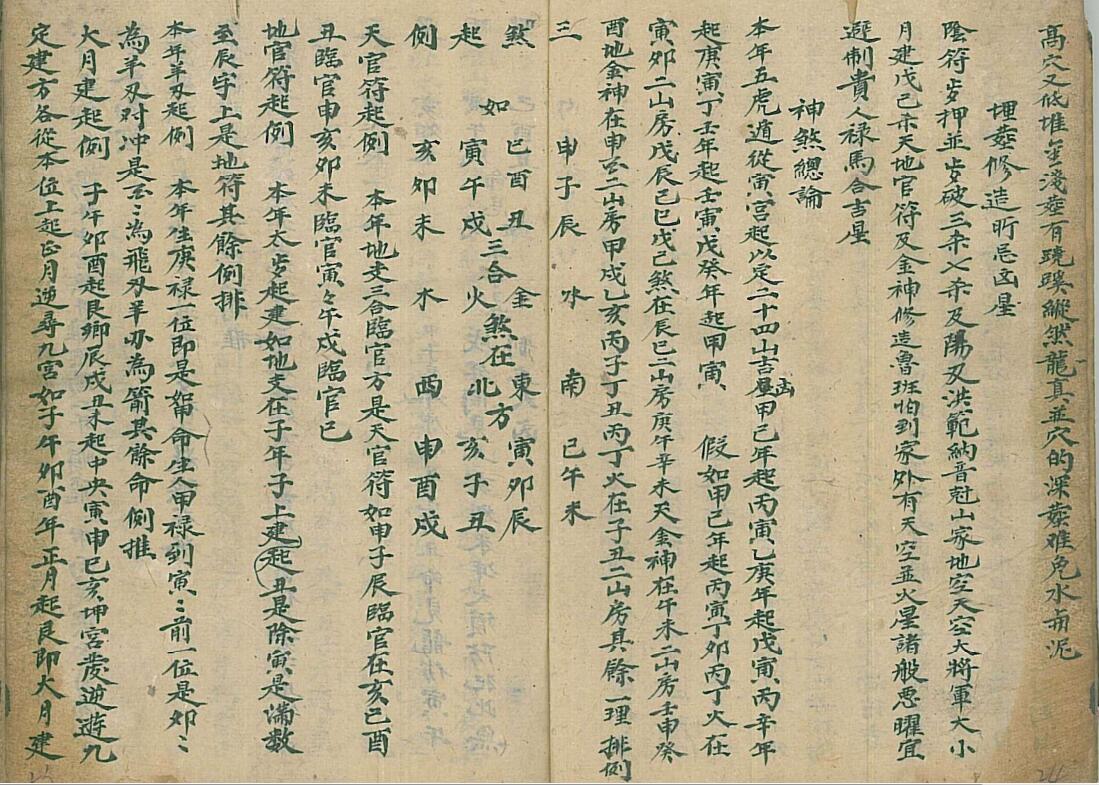 高穴又低堆金淺葬有蹺蹊縱然龍真並穴的深葬难免水而泥
埋葬修造所忌凶星
陰符岁押並岁破三杀七杀及陽刃洪範納音尅山家地空天空大將軍大小
月建戊己未天地官符及金神修造魯班怕到家外有天空並火星諸般恶曜宜
避制貴人禄馬合吉星
神煞總論
本年五虎遁從寅宮起以定二十四山吉凶星甲己年起丙寅乙庚年起戊寅丙辛年
起庚寅丁壬年起壬寅戊癸年起甲寅 假如甲己年起丙寅丁卯丙丁火在
寅卯二山房戊辰己巳戊己煞在辰巳二山房庚午辛未天金神在午未二山房壬申癸
酉地金神在申酉二山房甲戌乙亥丙子丁丑丙丁火在子丑二山房其餘一理排例
三 申子辰 水 南 巳午未
煞 如巳酉丑 金 東 寅卯辰
起 寅午戌 三合火 煞在北方 亥子丑
例 亥卯未 木 西 申酉戌
天官符起例 本年地支三合臨官方是天官符如申子辰臨官在亥巳酉
丑臨官申亥卯未臨官寅寅午戌臨官巳
地官符起例 本年太岁起建如地支在子年子上建起丑是除寅是滿数
至辰字上是地符其餘例排
本年羊刃起例 本年生庚禄前一位即是如甲命生人甲禄到寅〻前一位是卯〻
為羊刃对冲是酉〻為飛刃羊刃為箭其餘命例推
大月建起例 子午卯酉起艮鄉辰戌丑未起中央寅申巳亥坤宮發逆遊九
定建方各從本位上起正月逆尋九宮如子午卯酉年正月起艮即大月建